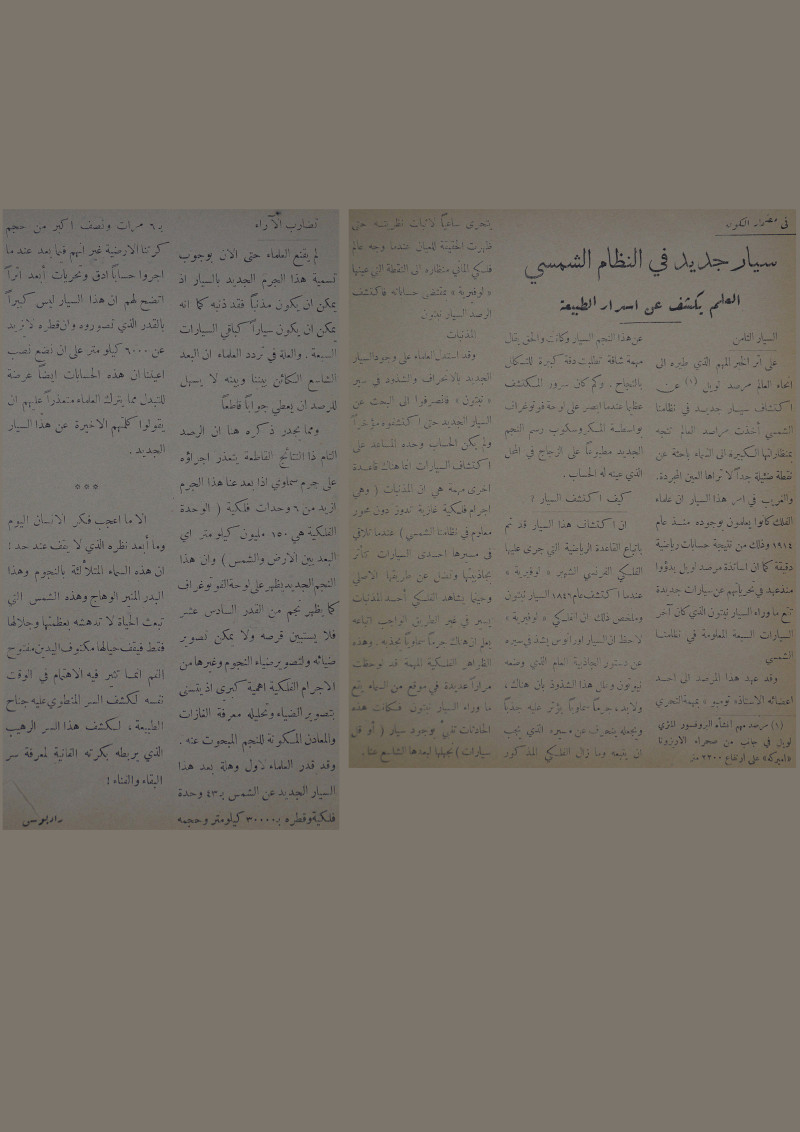 في مضمار الكون
سيار جديد في النظام الشمسي
العلم يكشف عن اسرار الطبيعة
السيار الثامن
على أثر الخبر المهم الذي طيره الى
انحاء العالم مرصد لويل (١) عن
اكتشاف سيار جديد في نظامنا
الشمسي أخذت مراصد العالم تتجه
بمنظاراتها الكبيرة الى السماء باحثة عن
نقطة ضئيلة جداً لا تراها العين المجردة.
والغريب في امر هذا السيار ان علماء
الفلك كانوا يعلمون بوجوده منذ عام
١٩١٤ وذلك من نتيجة حسابات رياضية
دقيقة كما ان اساتذة مرصد لويل بدؤوا
منذ عهد في تحرياتهم عن سيارات جديدة
تقع ما وراء السيار نبتون الذي كان آخر
السيارات السبعة المعلومة في نظامنا
الشمسي
وقد عهد هذا المرصد الى احد
اعضائه الاستاذ « تومبو » بمهمة التحري
(١) مرصد مهم انشأه البروفسور
لويل في جانب من صحراء الاريزونا
«اميركة» على ارتفاع ٢٢٠٠ متر
عن هذا النجم السيار وكانت والحق يقال
مهمة شاقة تطلبت دقة كبيرة لتتكلل
بالنجاح . وكم كان سرور المكتشف
عظيما عندما ابصر على لوحة فوتوغراف
بواسطة المكروسكوب رسم النجم
الجديد مطبوعاً على الزجاج في المحل
الذي عينه له الحساب .
كيف اكتشف السيار ؟
ان اكتشاف هذا السيار قد تم
باتباع القاعدة الرياضية التي جرى عليها
الفلكي الفرنسي الشهير « لوفيرية »
عندما اكتشف عام ١٨٤٦ السيار نبتون
وملخص ذلك ان الفلكي « لوفيرية »
لاحظ ان السيار اورانوس يشذ في سيره
عن دستور الجاذبية العام الذي وضعه
نيوتون وعلل هذا الشذوذ بان هناك ،
ولا بد ، جرماً سماوياً يؤثر عليه جذباً
ويجعله ينحرف عن مسيره الذي يجب
ان يتبعه وما زال الفلكي المذكور
يتحرى ساعياً لاثبات نظريته حتى
ظهرت الحقيقة للعيان عندما وجه عالم
فلكي الماني منظاره الى النقطة التي عينها
« لوفيرية » بمقتضى حساباته فاكتشف
الرصد السيار نبتون
المذنبات
وقد استدل العلماء على وجود السيار
الجديد بالانحراف والشذوذ في سير
« نبتون » فانصرفوا الى البحث عن
السيار الجديد حتى اكتشفوه مؤخراً
ولم يكن الحساب وحده المساعد على
اكتشاف السيارات انما هناك قاعدة
اخرى مهمة هي ان المذنبات ( وهي
اجرام فلكية غازية تدور دون محور
معلوم في نظامنا الشمسي ) عندما تلاقي
في مسيرها احدى السيارات تتأثر
بجاذبيتها وتضل عن طريقها الاصلي
وحينما يشاهد الفلكي أحد المذنبات
يسير في غير الطريق الواجب اتباعه
يعلم ان هناك جرماً سماوياً يجذبه . وهذه
الظواهر الفلكية المهمة قد لوحظت
مراراً عديدة في موقع من السماء يقع
ما وراء السيار نبتون فكانت هذه
الحادثات تنبئ بوجود سيار ( أو قل
سيارات ) نجهلها لبعدها الشاسع عنا .
تضارب الآراء
لم يقتنع العلماء حتى الان بوجوب
تسمية هذا الجرم الجديد بالسيار اذ
يمكن ان يكون مذنباً فقد ذنبه كما انه
يمكن ان يكون سياراً كباقي السيارات
السبعة . والعلة في تردد العلماء ان البعد
الشاسع الكائن بيننا وبينه لا يسهل
للرصد ان يعطي جواباً قاطعاً
ومما يجدر ذكره هنا ان الرصد
التام ذا النتائج القاطعة يتعذر اجراؤه
على جرم سماوي اذا بعد عنا هذا الجرم
ازيد من ٦ وحدات فلكية ( الوحدة
الفلكية هي ١٥٠ مليون كيلو متر اي
البعد بين الارض والشمس ) وان هذا
النجم الجديد يظهر على لوحة الفوتوغراف
كما يظهر نجم من القدر السادس عشر
فلا يستبين قرصه ولا يمكن تصوير
ضيائه ولتصوير ضياء النجوم وغيرها من
الاجرام الفلكية اهمية كبرى اذ يتسنى
بتصوير الضياء وتحليله معرفة الغازات
والمعادن المكونة للنجم المبحوث عنه .
وقد قدر العلماء لاول وهلة بعد هذا
السيار الجديد عن الشمس بـ ٤٣ وحدة
فلكية وقطره بـ ٣٠٠٠٠ كيلو متر وحجمه
بـ ٦ مرات ونصف اكبر من حجم
كرتنا الارضية غير انهم فيما بعد عند ما
اجروا حساباً ادق وتحريات أبعد اثراً
اتضح لهم ان هذا السيار ليس كبيراً
بالقدر الذي تصوروه وان قطره لا يزيد
عن ٦٠٠٠ كيلو متر على ان نضع نصب
اعيننا ان هذه الحسابات ايضاً عرضة
للتبدل مما يترك العلماء متعذراً عليهم ان
يقولوا كلمتهم الاخيرة عن هذا السيار
الجديد .
***
الا ما اعجب فكر الانسان اليوم
وما أبعد نظره الذي لا يقف عند حد !
ان هذه السماء المتلألئة بالنجوم وهذا
البدر المنير الوهاج وهذه الشمس التي
تبعث الحياة لا تدهشه بعظمتها وجلالها
فقط فيقف حيالها مكتوف اليدين مفتوح
الفم انما تثير فيه الاهتمام في الوقت
نفسه لكشف السر المنطوي عليه جناح
الطبيعة ، لكشف هذا السر الرهيب
الذي يربطه بكرته الفانية لمعرفة سر
البقاء والفناء !
راديوسى